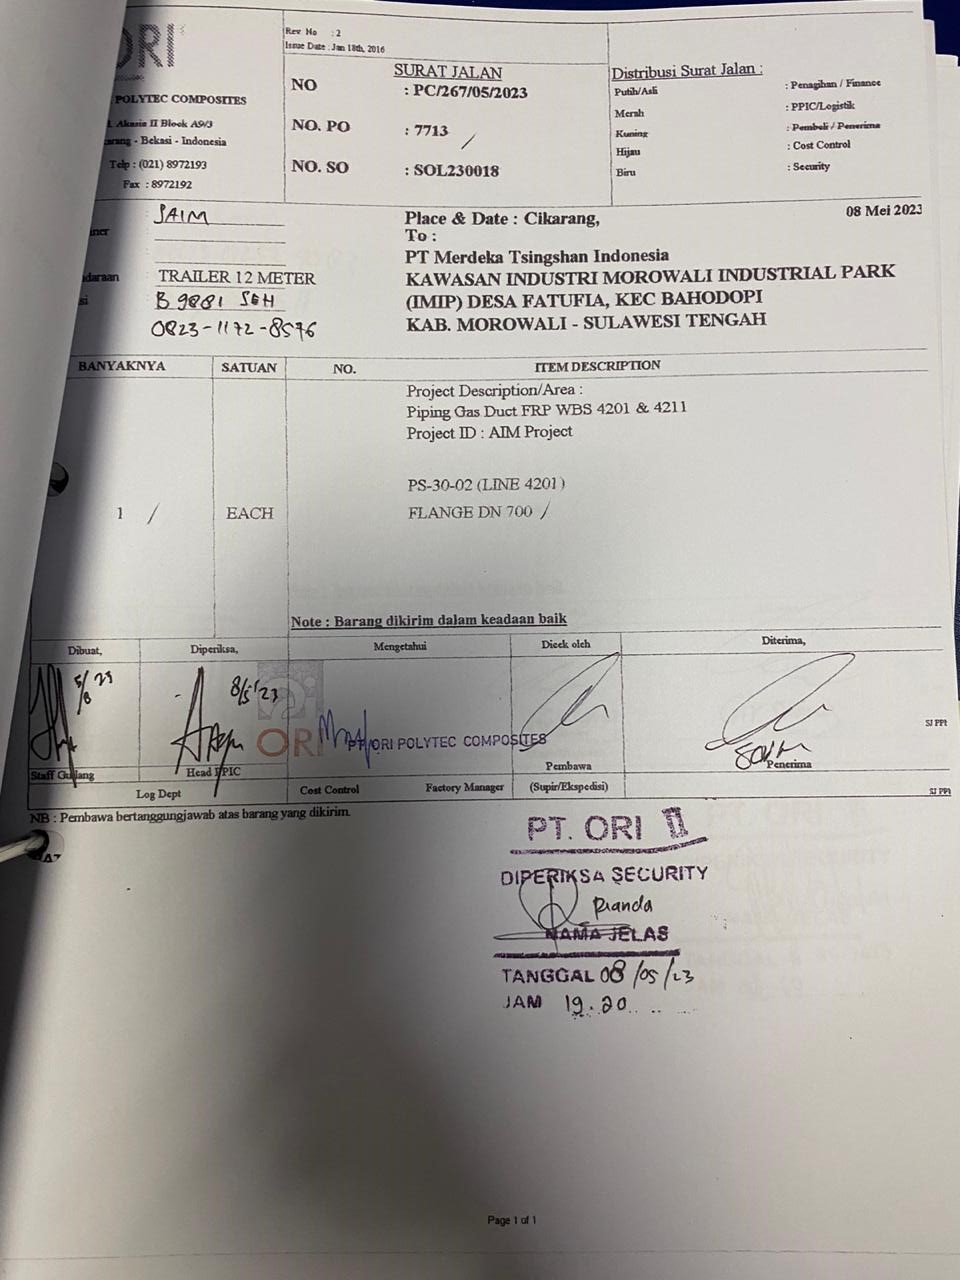 ORI
POLYTEC COMPOSITES
Akasia II Block A9/3
- Bekasi - Indonesia
Telp : (021) 8972193
Fax : 8972192
Rev No : 2
Issue Date : Jan 18th, 2016
SURAT JALAN
NO : PC/267/05/2023
NO. PO : 7713
NO. SO : SOL230018
Distribusi Surat Jalan :
Putih/Asli : Penagihan / Finance
Merah : PPIC/Logistik
Kuning : Pembeli / Penerima
Hijau : Cost Control
Biru : Security
JAIM
TRAILER 12 METER
B 9881 SEH
0823-1172-8576
Place & Date : Cikarang, 08 Mei 2023
To :
PT Merdeka Tsingshan Indonesia
KAWASAN INDUSTRI MOROWALI INDUSTRIAL PARK
(IMIP) DESA FATUFIA, KEC BAHODOPI
KAB. MOROWALI - SULAWESI TENGAH
BANYAKNYA SATUAN NO. ITEM DESCRIPTION
Project Description/Area :
Piping Gas Duct FRP WBS 4201 & 4211
Project ID : AIM Project
PS-30-02 (LINE 4201)
1 / EACH FLANGE DN 700 /
Note : Barang dikirim dalam keadaan baik
Dibuat, Diperiksa, Mengetahui Dicek oleh Diterima,
8/5'23
ORI
PT. ORI POLYTEC COMPOSITES
SJ PPI
Staff Gudang Head PPIC Pembawa Penerima
Log Dept Cost Control Factory Manager (Supir/Ekspedisi) SJ PPI
NB : Pembawa bertanggungjawab atas barang yang dikirim.
PT. ORI II
DIPERIKSA SECURITY
Rianda
NAMA JELAS
TANGGAL 08/05/23
JAM 19.20
Page 1 of 1